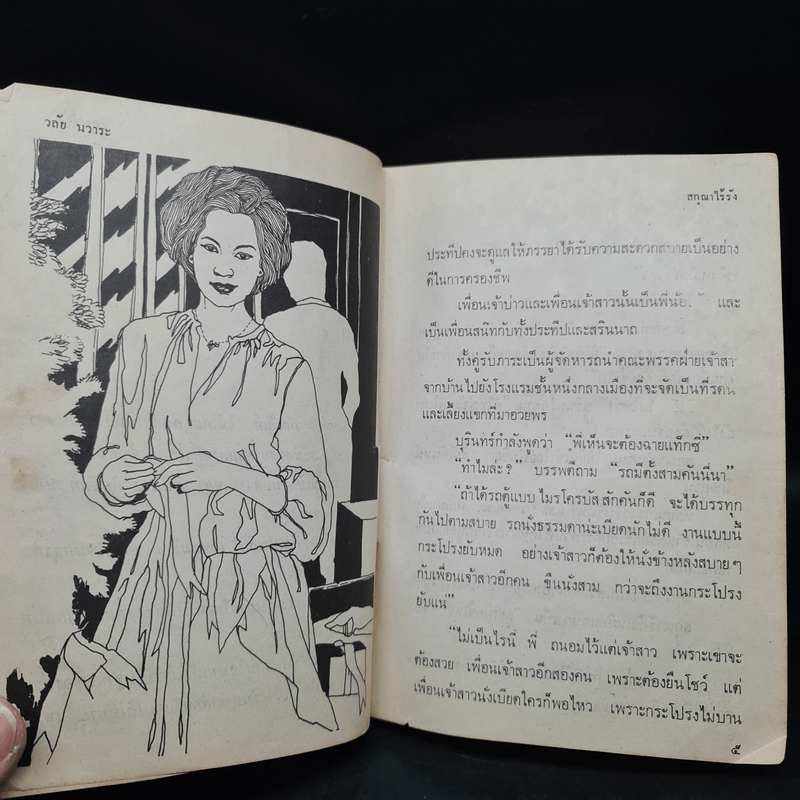 วลัย นวาระ
สกุณาไร้รัง
ประทีปคงจะดูแลให้ภรรยาได้รับความสะดวกสบายเป็นอย่าง
ดีในการครองชีพ
เพื่อนเจ้าบ่าวและเพื่อนเจ้าสาวนั้นเป็นพี่น้อง และ
เป็นเพื่อนสนิทกับทั้งประทีปและสรินนาถ
ทั้งคู่รับภาระเป็นผู้จัดหารถนำคณะพรรคฝ่ายเจ้าสา
จากบ้านไปยังโรงแรมชั้นหนึ่งกลางเมืองที่จะจัดเป็นที่รดน
และเลี้ยงแขกที่มาอวยพร
บุรินทร์กำลังพูดว่า “พี่เห็นจะต้องฉายแท็กซี่”
“ทำไมล่ะ?” บรรพตีถาม “รถมีตั้งสามคันนี่นา”
“ถ้าได้รถตู้แบบไมรโครบัสสักคันก็ดี จะได้บรรทุก
กันไปตามสบาย รถนั่งธรรมดาน่ะเบียดนักไม่ดี งานแบบนี้
กระโปรงยับหมด อย่างเจ้าสาวก็ต้องให้นั่งข้างหลังสบายๆ
กับเพื่อนเจ้าสาวอีกคน ขืนนั่งสาม กว่าจะถึงงานกระโปรง
ยับแน่”
“ไม่เป็นไรนี่ พี่ ถนอมไว้แต่เจ้าสาว เพราะเขาจะ
ต้องสวย เพื่อนเจ้าสาวอีกสองคน เพราะต้องยืนโชว์ แต่
เพื่อนเจ้าสาวนั่งเบียดใครก็พอไหว เพราะกระโปรงไม่บาน
๕